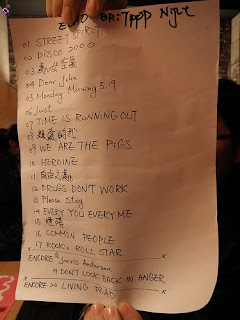 ECHO BRITPOP Night
01 STREET SPIRIT
02 DISCO 2000
03
04 Dear John
05 Monday Morning 5.19
06 Just
07 TIME IS RUNNING OUT
08
09 WE ARE THE PIGS
10 HEROINE
11
12 DRUGS DON'T WORK
13 Please Stay
14 EVERY YOU EVERY ME
15
16 COMMON PEOPLE
17 ROCK'N ROLL STAR
ENCORE Jarvis
19 DON'T LOOK BACK IN ANGER
ENCORE 20 LIVING DEAD